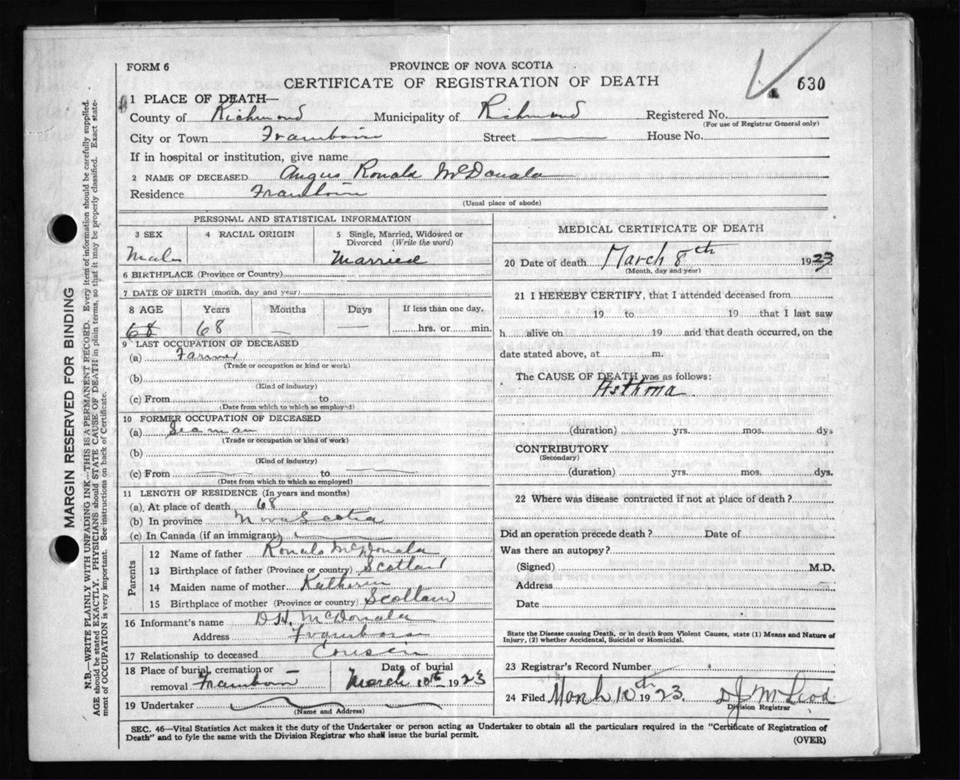 FORM 6
PROVINCE OF NOVA SCOTIA
CERTIFICATE OF REGISTRATION OF DEATH
630
1 PLACE OF DEATH—
County of Richmond Municipality of Richmond Registered No.
(For use of Registrar General only)
City or Town Framboise Street House No.
If in hospital or institution, give name
2 NAME OF DECEASED Angus Ronald McDonald
Residence Framboise
(Usual place of abode)
PERSONAL AND STATISTICAL INFORMATION
3 SEX 4 RACIAL ORIGIN 5 Single, Married, Widowed or Divorced (Write the word)
Male Married
6 BIRTHPLACE (Province or Country)
7 DATE OF BIRTH (month, day and year)
8 AGE Years Months Days If less than one day,
68 68 — — hrs. or min.
9 LAST OCCUPATION OF DECEASED
(a) Farmer
(Trade or occupation or kind or work)
(b)
(Kind of industry)
(c) From to
(Date from which to which so employed)
10 FORMER OCCUPATION OF DECEASED
(a) Seaman
(Trade or occupation or kind of work)
(b)
(Kind of industry)
(c) From to
(Date from which to which so employed)
11 LENGTH OF RESIDENCE (In years and months)
(a) At place of death 68
(b) In province Nova Scotia
(c) In Canada (if an immigrant)
Parents
12 Name of father Ronald McDonald
13 Birthplace of father (Province or country) Scotland
14 Maiden name of mother Katherin
15 Birthplace of mother (Province or country) Scotland
16 Informant's name D.H. McDonald
Address Framboise
17 Relationship to deceased Cousin
18 Place of burial, cremation or removal Framboise
Date of burial March 10th 1923
19 Undertaker
(Name and Address)
MEDICAL CERTIFICATE OF DEATH
20 Date of death March 8th 1923
(Month, day and year)
21 I HEREBY CERTIFY, that I attended deceased from
19 to 19 that I last saw
h alive on 19 and that death occurred, on the
date stated above, at m.
The CAUSE OF DEATH was as follows:
Asthma
(duration) yrs. mos. dys
CONTRIBUTORY
(Secondary)
(duration) yrs. mos. dys.
22 Where was disease contracted if not at place of death?
Did an operation precede death? Date of
Was there an autopsy?
(Signed) M.D.
Address
Date
State the Disease causing Death, or in death from Violent Causes, state (1) Means and Nature of
Injury, (2) whether Accidental, Suicidal or Homicidal.
23 Registrar's Record Number
24 Filed March 10th 1923 D J McLeod
Division Registrar
SEC. 46—Vital Statistics Act makes it the duty of the Undertaker or person acting as Undertaker to obtain all the particulars required in the "Certificate of Registration of
Death" and to fyle the same with the Division Registrar who shall issue the burial permit.
(OVER)
MARGIN RESERVED FOR BINDING
N.B.—WRITE PLAINLY WITH UNFADING INK—THIS IS A PERMANENT RECORD. Every item of information should be carefully supplied.
AGE should be stated EXACTLY. PHYSICIANS should STATE CAUSE OF DEATH in plain terms, so that it may be properly classified. Exact state-
ment of OCCUPATION is very important. See instructions on back of Certificate.